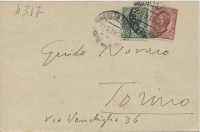 4317
Guido
Torino
Via Vanchiglia 36